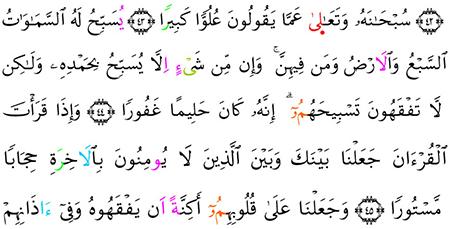 ﴿٤٢﴾ سُبْحَٰنَهُۥ وَتَعَٰلَىٰ عَمَّا يَقُولُونَ عُلُوًّا كَبِيرًا ﴿٤٣﴾ يُسَبِّحُ لَهُ السَّمَٰوَٰتُ
السَّبْعُ وَالَارْضُ وَمَن فِيهِنَّ ۚ وَإِن مِّن شَىْءٍ اِلَّا يُسَبِّحُ بِحَمْدِهِۦ وَلَٰكِن
لَّا تَفْقَهُونَ تَسْبِيحَهُمُۥٓ ۗ إِنَّهُۥ كَانَ حَلِيمًا غَفُورًا ﴿٤٤﴾ وَإِذَا قَرَأْتَ
الْقُرْءَانَ جَعَلْنَا بَيْنَكَ وَبَيْنَ الَّذِينَ لَا يُومِنُونَ بِالَاخِرَةِ حِجَابًا
مَّسْتُورًا ﴿٤٥﴾ وَجَعَلْنَا عَلَىٰ قُلُوبِهِمُۥٓ أَكِنَّةً اَن يَفْقَهُوهُ وَفِىٓ ءَاذَانِهِمْ